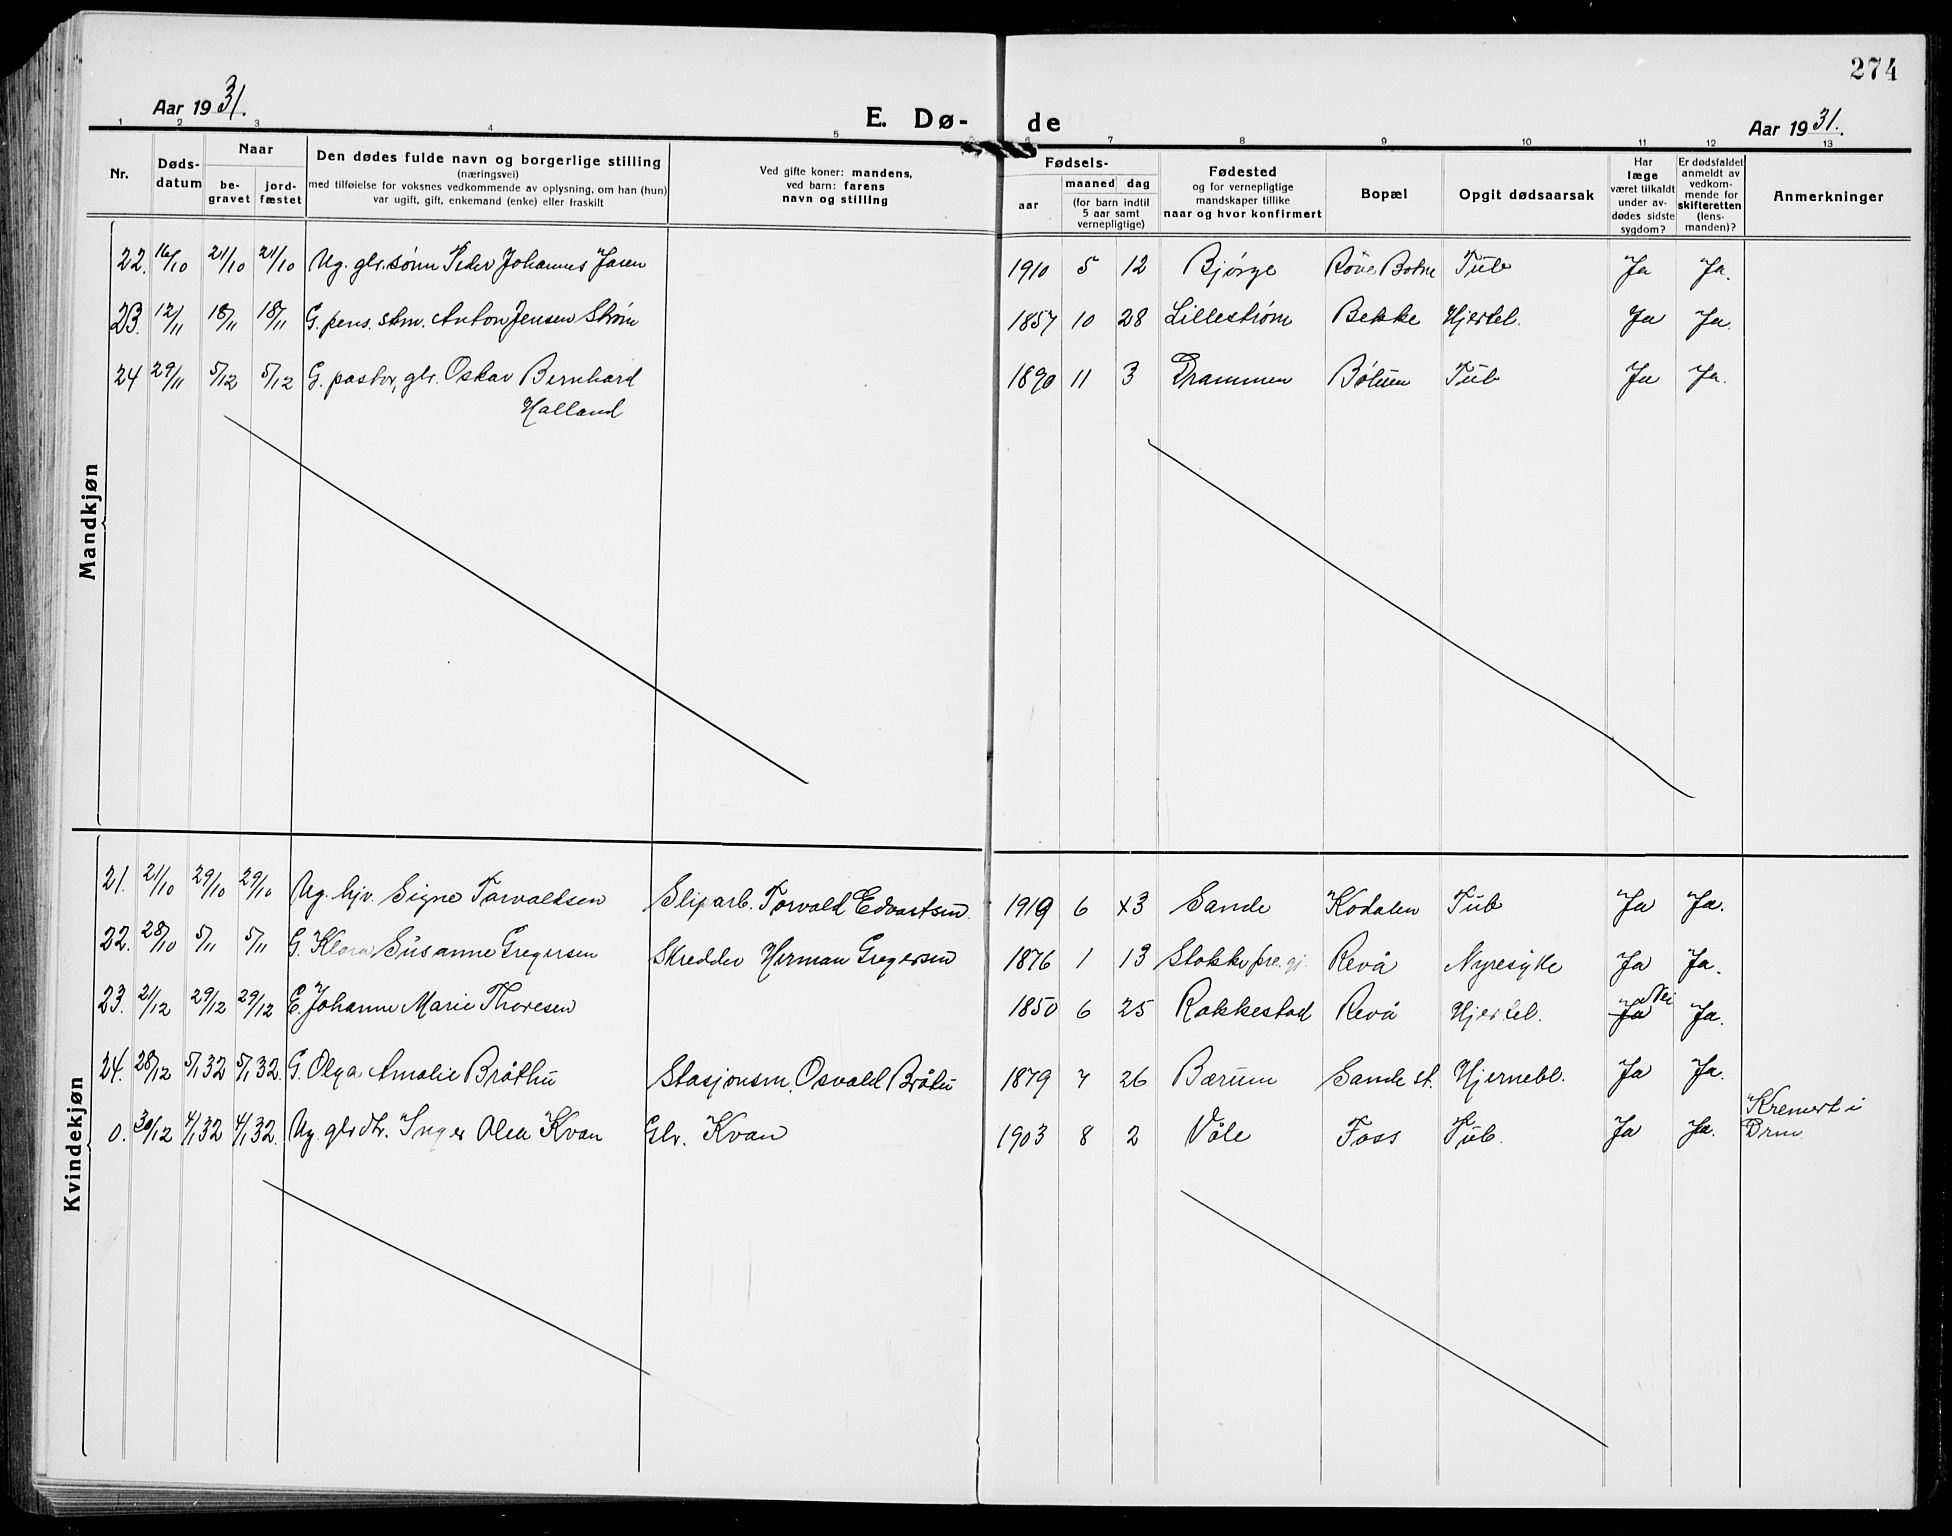 274
Aar 1931.
E. Dø-
de
Aar 1931.
1 2 3 4 5 6 7 8 9 10 11 12 13
Nr.
Døds-
datum
Naar
be-
gravet
jord-
fæstet
Den dødes fulde navn og borgerlige stilling
(næringsvei)
med tilføielse for voksnes vedkommende av oplysning, om han (hun)
var ugift, gift, enkemand (enke) eller fraskilt
Ved gifte koner: mandens,
ved barn: farens
navn og stilling
Fødsels-
aar
maaned dag
(for barn indtil
5 aar samt
vernepligtige)
Fødested
og for vernepligtige
mandskaper tillike
naar og hvor konfirmert
Bopæl
Opgit dødsaarsak
Har
læge
været tilkaldt
under av-
dødes sidste
sygdom?
Er dødsfaldet
anmeldt av
vedkom-
mende for
skifteretten
(lens-
manden)?
Anmerkninger
Mandkjøn
22. 16/10 21/10 21/10 Ug. glr.sønn Peder Johannes Jaren 1910 5 12 Bjørge Botne Tub Ja Ja.
23. 12/11 18/11 18/11 G. pens. stm. Anton Jensen Strøm 1857 10 28 Lillestrøm Bekke Hjertel. Ja Ja.
24 29/11 5/12 5/12 G. pastor, glr. Oskar Bernhard 1890 11 3 Drammen Tub Ja Ja.
Halland
Kvindekjøn
21. 21/10 29/10 29/10 Ug. hjv. Signe Torvaldsen Sliparb. Torvald Edvartsen 1919 6 3 Sande Kodalen Tub Ja Ja.
22. 28/10 5/11 5/11 G. Klara Susanne Gregersen Skredder Herman Gregersen 1876 1 13 Stokke pre.gj. Revå Nyresyke Ja Ja.
23. 21/12 29/12 29/12 E. Johanne Marie Thoresen 1850 6 25 Rakkestad Revå Hjertel. Ja Nei Ja.
24. 28/12 5/1 32 5/1 32. G. Olga Amalie Bråthu Stasjonsm. Osvald Bråtu 1879 7 26 Bærum Sande st. Hjernebl. Ja Ja.
0. 30/12 4/1 32 4/1 32. Ug. glrdtr. Inger Olea Kvan Glr. Kvan 1903 8 2 Våle Foss Tub. Ja Ja. Kremert i
Drm.